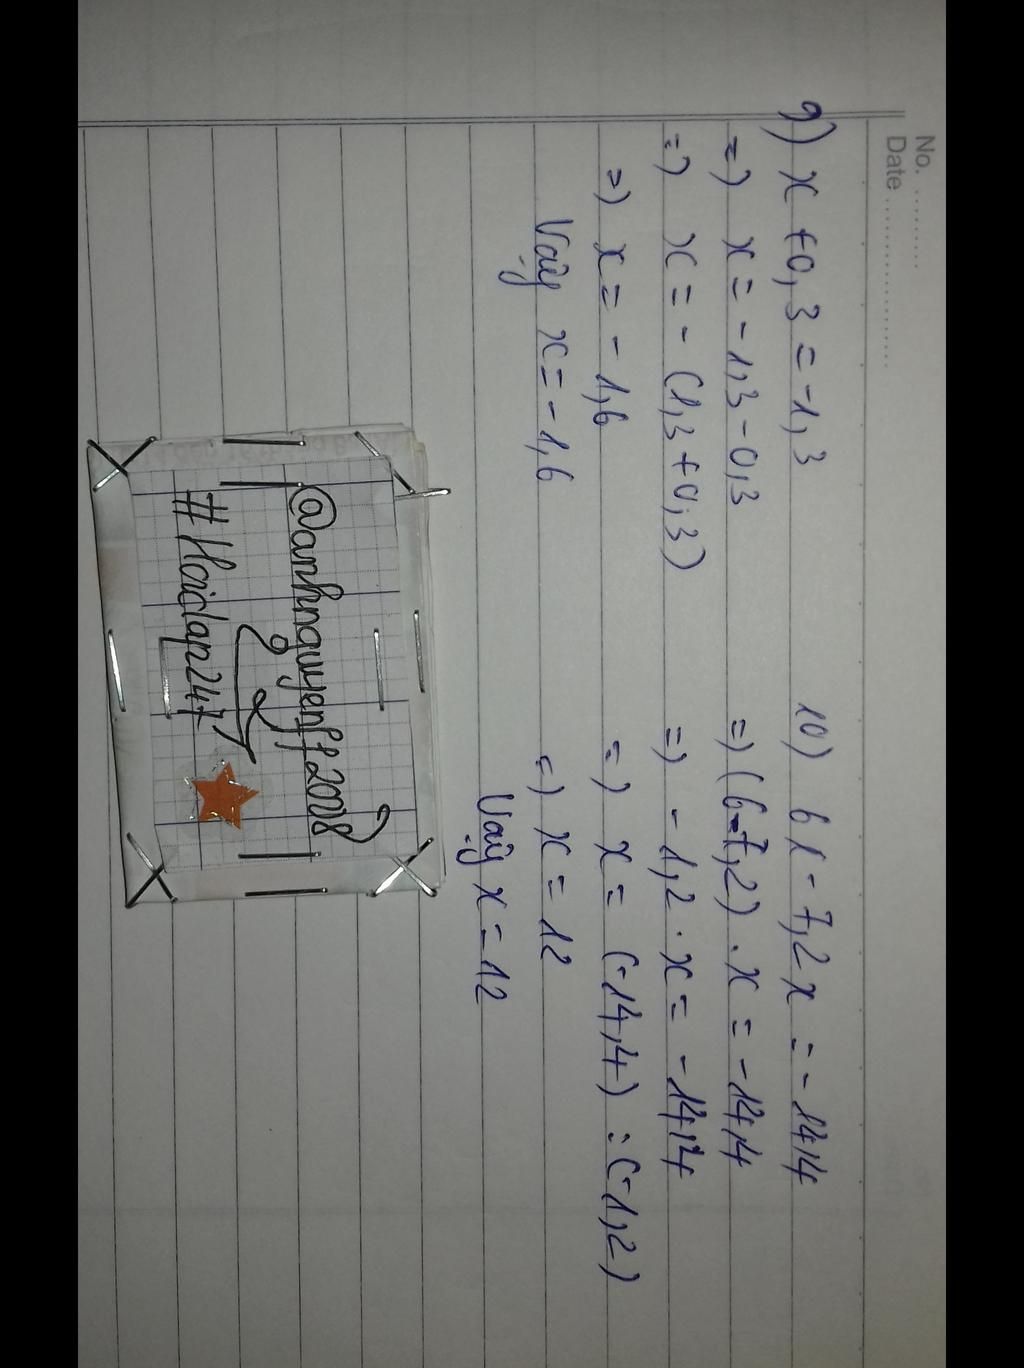 No. ..........
Date ........................
9) x + 0,3 = -1,3
=) x = -1,3 - 0,3
=) x = - (1,3 + 0,3)
=) x = - 1,6
Vậy x = -1,6
10) 6x - 7,2x = - 14,4
=) (6-7,2) . x = -14,4
=) - 1,2 . x = - 14,4
=) x = (-14,4) : (-1,2)
=) x = 12
Vậy x = 12
@anhnguyenff2008
#Hoidap247